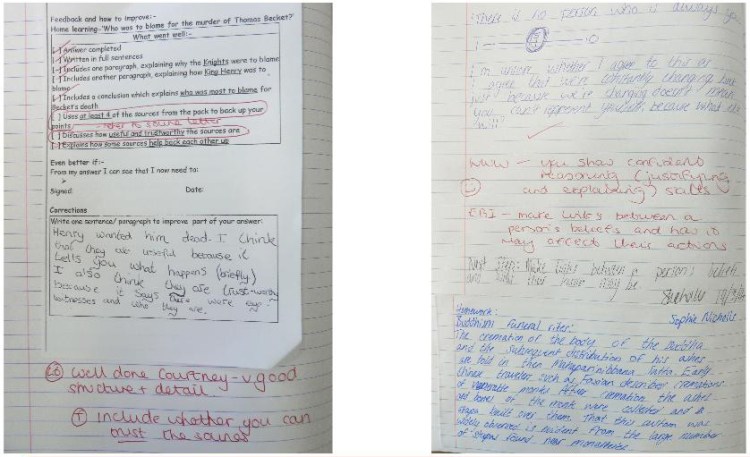 Feedback and how to improve:-
Home learning-'Who was to blame for the murder of Thomas Becket?'
What went well:-
[ ] Answer completed
[ ] Written in full sentences
[ ] Includes one paragraph, explaining why the Knights were to blame
[ ] Includes another paragraph, explaining how King Henry was to
blame
[ ] Includes a conclusion which explains who was most to blame for
Becket's death
[ ] Uses at least 4 of the sources from the pack to back up your
points. refer to source letter
[ ] Discusses how useful and trustworthy the sources are
[ ] Explains how some sources help back each other up
Even better if:-
From my answer I can see that I now need to:
>
Signed: Date:
Corrections
Write one sentence/ paragraph to improve part of your answer:
Henry wanted him dead. I think
that they are useful because it
tells you what happens (briefly)
I also think they are trust-worthy
because it says were eye-
witnesses and who they are.
well done Courtney - v.good
structure + detail
T include whether you can
trust the sources
There is no person who is always you
I'm unsure whether I agree to this as
I agree that we're constantly changing but
just because we're changing doesn't mean
you can't represent yourself because what else
WWW - you show confident
reasoning (justifying
and explaining) skills
EBI - make links between a
person's beliefs and how it
may affect their actions
Next step: Make links between a person's beliefs
and how that may be.
Sophie Nicholls
Homework:
Buddhism funeral rites:
The cremation of the body of the Buddha
and the subsequent distribution of his ashes
are told in the Mahaparinibbana Sutta. Early
Chinese travelers such as Faxian described cremations
of venerable monks. After cremation the ashes
and bones of the monk were collected and a
stupa built over them. That this custom was
widely observed is evident from the large number
of stupas found near monasteries.